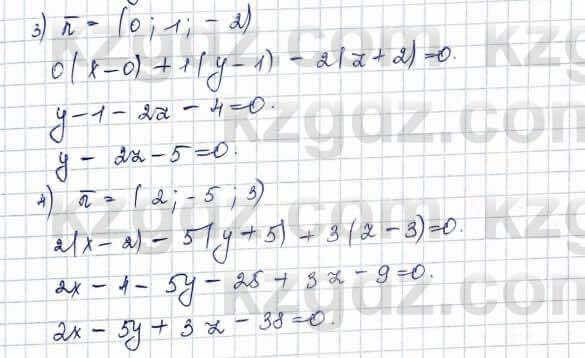 3) n̄ = (0; 1; -2)
0(x-0) + 1(y-1) - 2(z+2)=0.
y-1-2z-4=0.
y-2z-5=0.
4) n̄ = (2; -5; 3)
2(x-2) - 5(y+5) + 3(z-3)=0.
2x-4-5y-25+3z-9=0.
2x-5y+3z-38=0.
kzgdz.com